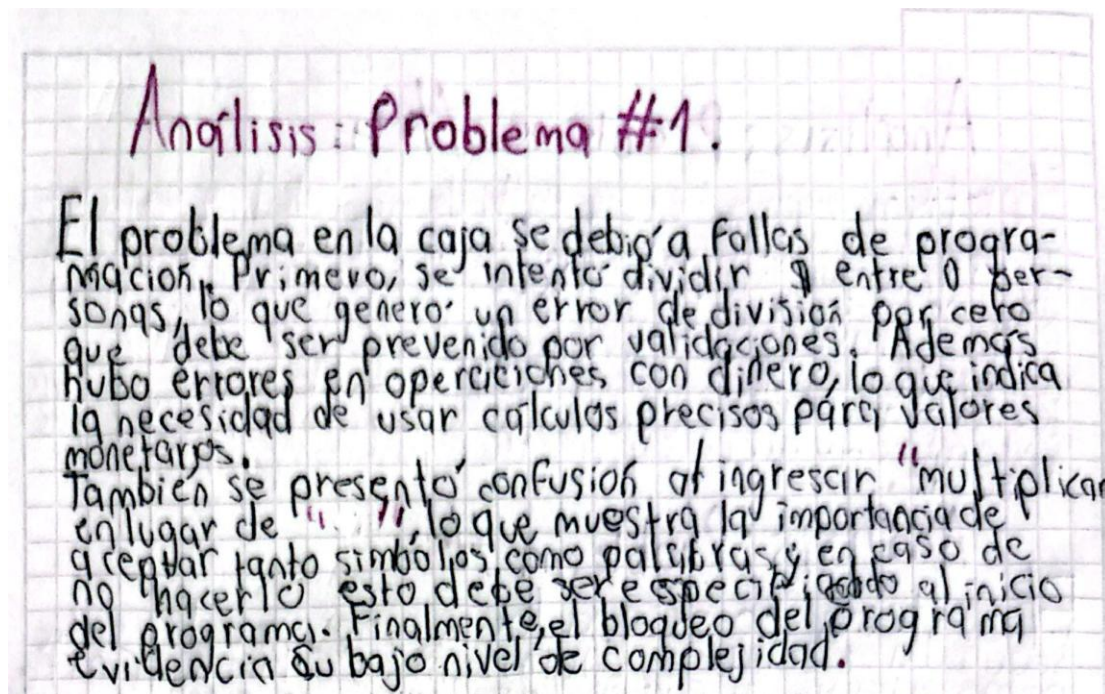 Análisis: Problema #1.
El problema en la caja se debió a fallas de progra-
mación. Primero, se intentó dividir $ entre 0 per-
sonas, lo que generó un error de división por cero
que debe ser prevenido por validaciones. Además
hubo errores en operaciones con dinero, lo que indica
la necesidad de usar cálculos precisos para valores
monetarios.
También se presentó confusión al ingresar "multiplicar
en lugar de " ", lo que muestra la importancia de
aceptar tanto símbolos como palabras y en caso de
no hacerlo esto debe ser especificado al inicio
del programa. Finalmente, el bloqueo del programa
evidencia su bajo nivel de complejidad.